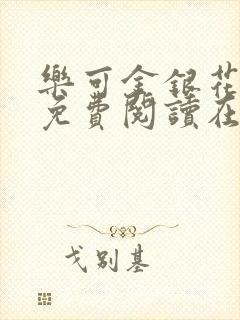 樂可金銀花
免費閱讀在
戈別基